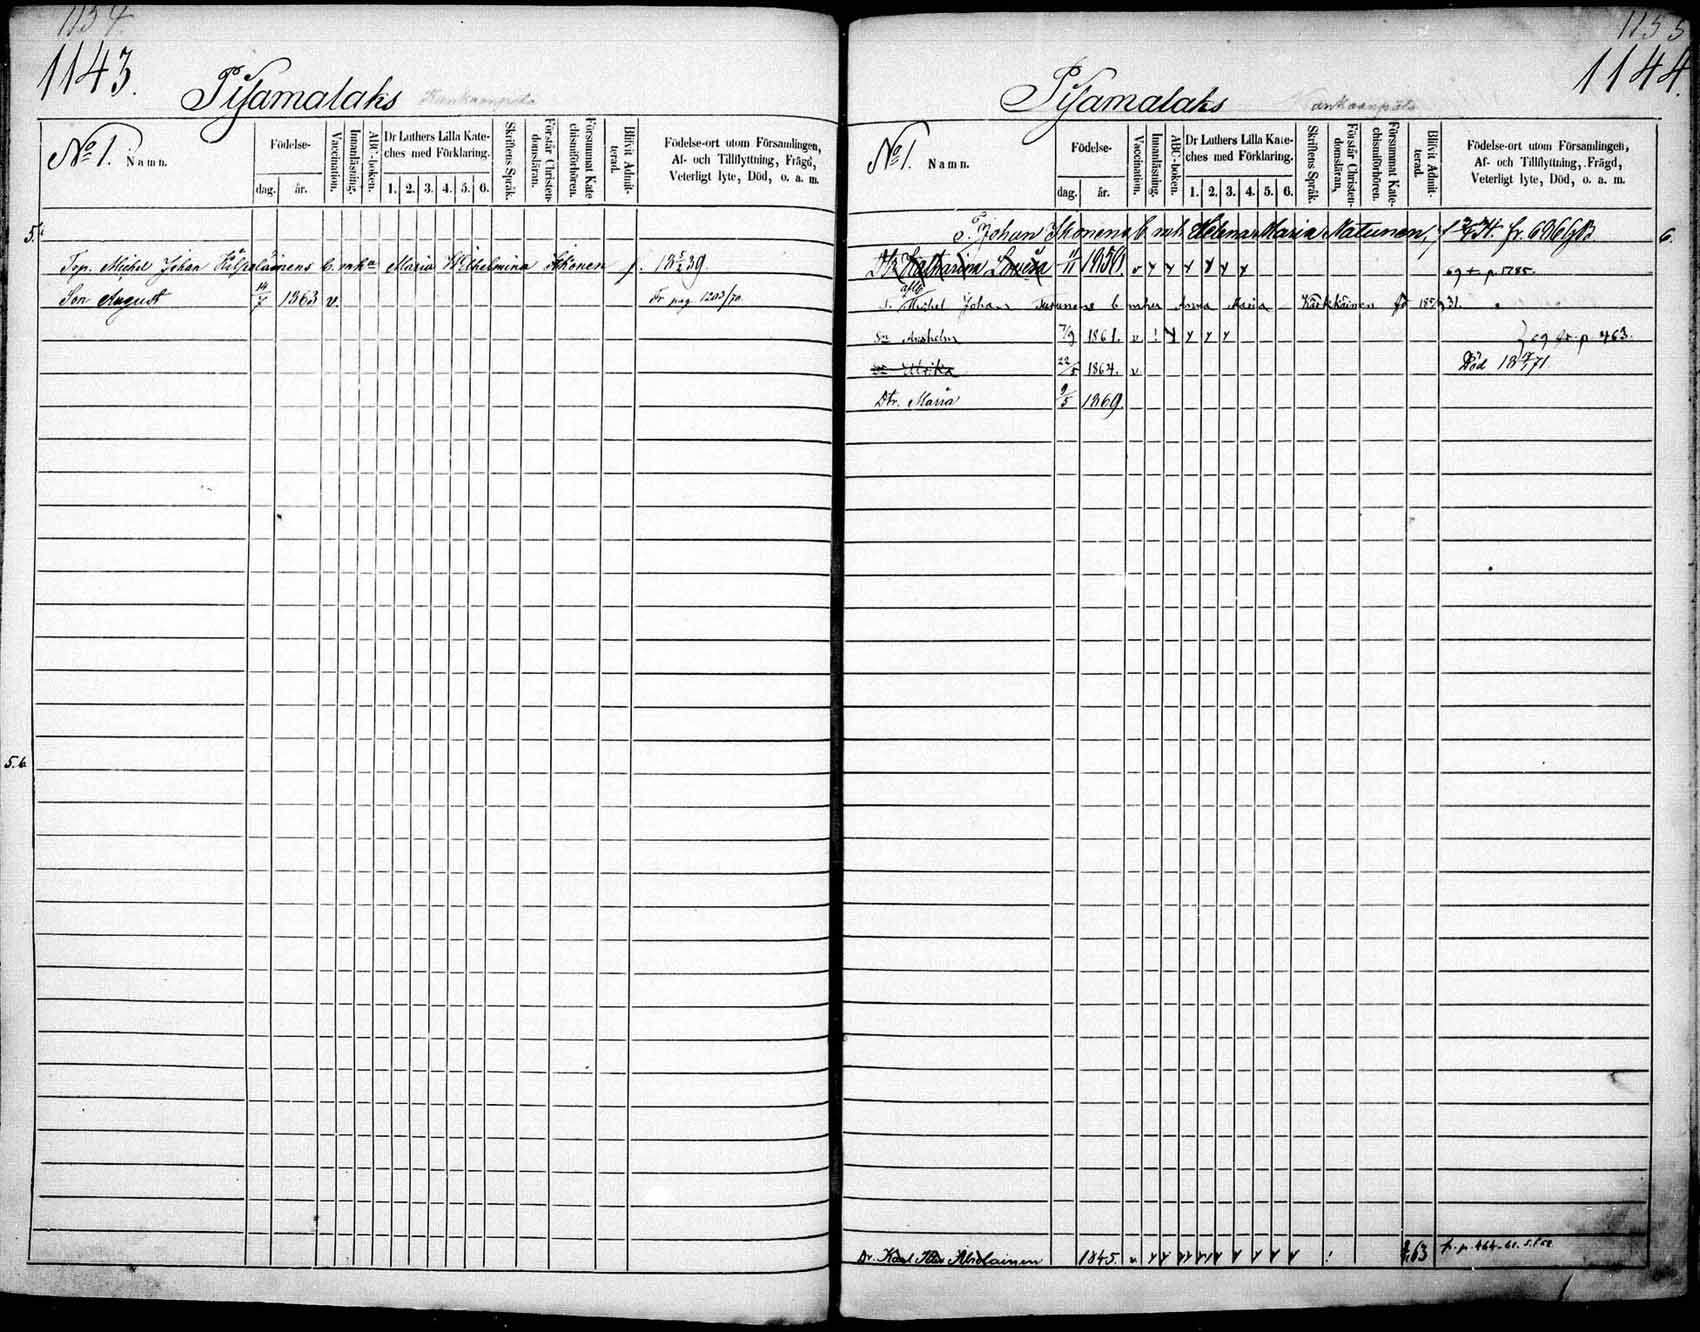 1154.
1143.
Pisamalaks Kankaanpää
No 1. Namn.
Födelse-
dag. år.
Vaccination.
Innanläsning.
ABC-boken.
Dr Luthers Lilla Kate-
ches med Förklaring.
1. 2. 3. 4. 5. 6.
Skriftens Språk.
Förstår Christen-
domsläran.
Försummat Kate
chismiförhören.
Blifvit Admit-
terad.
Födelse-ort utom Församlingen,
Af- och Tillflyttning, Frägd,
Veterligt lyte, Död, o. a. m.
5.
Michel Johan Hilpeläinens E. mka Maria Wilhelmina Ikonen f. 18 5/2 39.
Son August 1863 v. Fr pag 1203/70.
5.6
1155
1144.
Pisamalaks Kankaanpää
No 1. Namn.
Födelse-
dag. år.
Vaccination.
Innanläsning.
ABC-boken.
Dr Luthers Lilla Kate-
ches med Förklaring.
1. 2. 3. 4. 5. 6.
Skriftens Språk.
Förstår Christen-
domsläran,
Försummat Kate-
chismiförhören.
Blifvit Admit-
terad.
Födelse-ort utom Församlingen,
Af- och Tillflyttning, Frägd,
Veterligt lyte, Död, o. a. m.
Johan Ikonens E. mk. Helena Maria Matunen, 6.
Katharina Lovisa 11/11 1850. v y y y y y y
Michel Johan E mka Anna Maria Kärkkäinen 31.
7/9 1861. v ! y y y y p. 463.
Ulrika 22/5 1864. v Död
Dtr. Maria 9/5 1869.
1845. 63 fr. p. 464